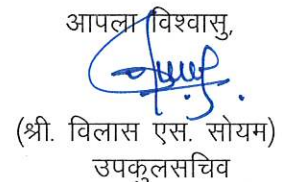 आपला विश्वासु,
(श्री. विलास एस. सोयम)
उपकुलसचिव